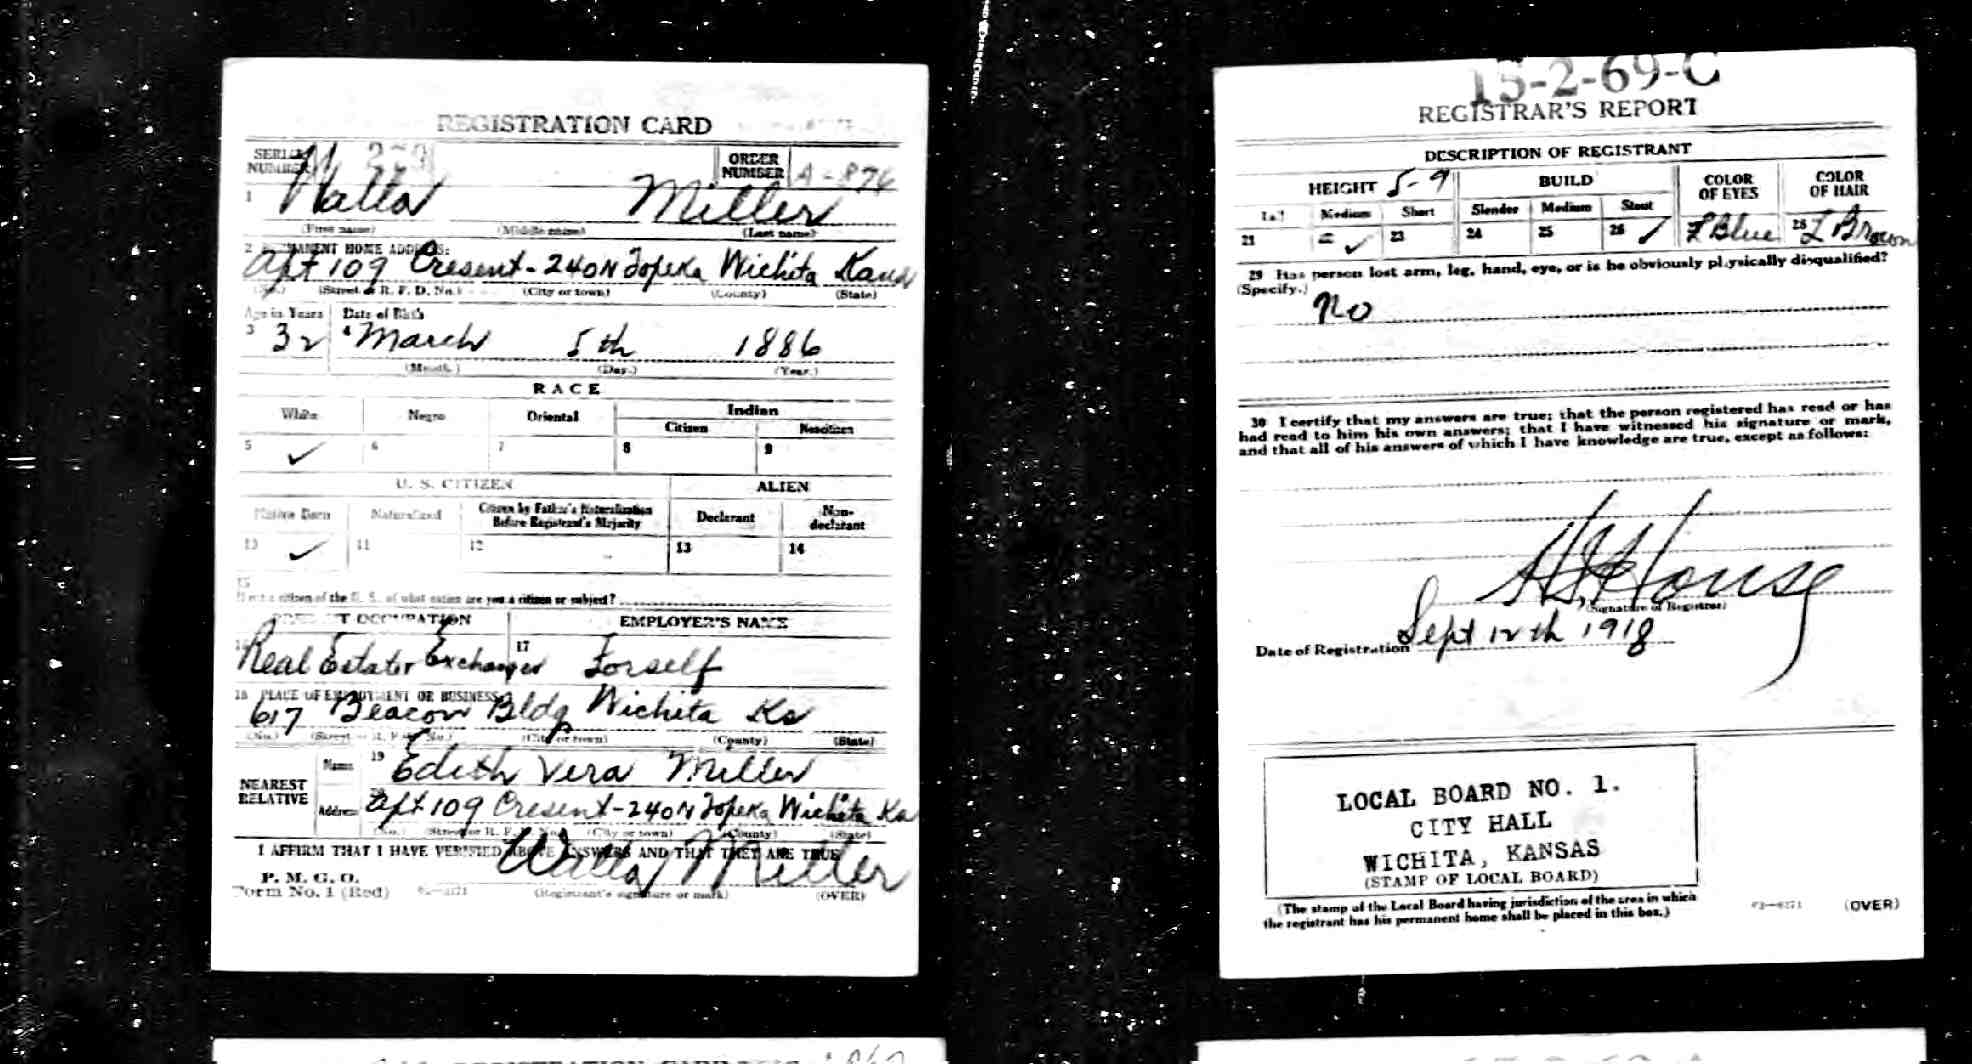 REGISTRATION CARD
SERIAL NUMBER 273 ORDER NUMBER A-876
1 Walla Miller
(First name) (Middle name) (Last name)
2 PERMANENT HOME ADDRESS:
Apt 109 Cresent - 240 N Topeka Wichita Kans
(No.) (Street or R. F. D. No.) (City or town) (County) (State)
Age in Years Date of Birth
3 32 4 March 5th 1886
(Month.) (Day.) (Year.)
RACE
White Negro Oriental Indian
Citizen Noncitizen
5 ✓ 6 7 8 9
U. S. CITIZEN ALIEN
Native Born Naturalized Citizen by Father's Naturalization Before Registrant's Majority Declarant Non-declarant
10 ✓ 11 12 13 14
15
If not a citizen of the U. S., of what nation are you a citizen or subject?
PRESENT OCCUPATION EMPLOYER'S NAME
16 Real Estator Exchanger 17 Forself
18 PLACE OF EMPLOYMENT OR BUSINESS:
617 Beacon Bldg Wichita Ks
(No.) (Street or R. F. D. No.) (City or town) (County) (State)
NEAREST RELATIVE
Name 19 Edith Vera Miller
Address 20 Apt 109 Cresent - 240 N Topeka Wichita Ka
(No.) (Street or R. F. D. No.) (City or town) (County) (State)
I AFFIRM THAT I HAVE VERIFIED ABOVE ANSWERS AND THAT THEY ARE TRUE
P. M. G. O.
Form No. 1 (Red) Walla Miller
(Registrant's signature or mark) (OVER)
REGISTRATION CARD
15-2-69-C
REGISTRAR'S REPORT
DESCRIPTION OF REGISTRANT
HEIGHT 5-9 BUILD COLOR OF EYES COLOR OF HAIR
Tall Medium Short Slender Medium Stout
21 22 ✓ 23 24 25 26 ✓ L Blue 28 L Brown
29 Has person lost arm, leg, hand, eye, or is he obviously physically disqualified?
(Specify.)
No
30 I certify that my answers are true; that the person registered has read or has
had read to him his own answers; that I have witnessed his signature or mark,
and that all of his answers of which I have knowledge are true, except as follows:
House
(Signature of Registrar)
Date of Registration Sept 12th 1918
LOCAL BOARD NO. 1.
CITY HALL
WICHITA, KANSAS
(STAMP OF LOCAL BOARD)
(The stamp of the Local Board having jurisdiction of the area in which
the registrant has his permanent home shall be placed in this box.)
(OVER)